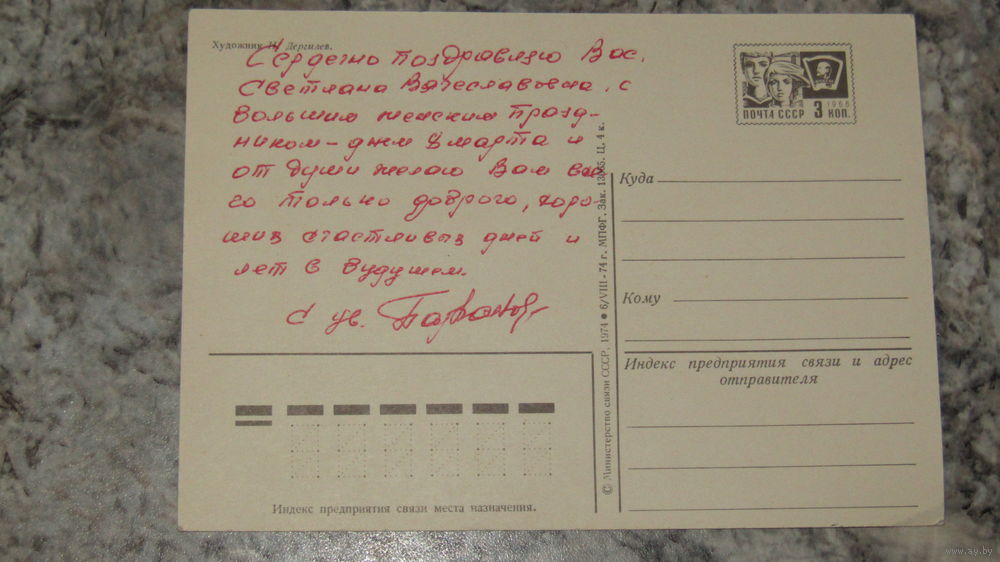 Художник Н. Дергилев.
Сердечно поздравляю Вас,
Светлана Вячеславовна, с
большим женским празд-
ником – днем 8 марта и
от души желаю Вам все-
го только доброго, хоро-
ших счастливых дней и
лет в будущем.
С ув.
ПОЧТА СССР 3 КОП.
1966
Куда
Кому
Индекс предприятия связи и адрес
отправителя
© Министерство связи СССР, 1974 ● 6/VIII-74 г. МПФГ. Зак. Ц. 4 к.
Индекс предприятия связи места назначения.
www.ay.by